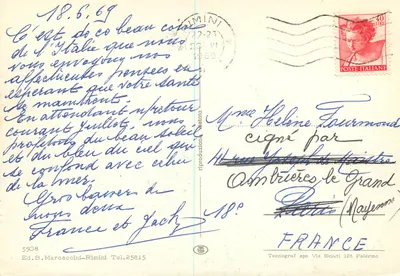 18.6.69
C'est de ce beau coin
de l'Italie que nous
vous envoyons nos
affectueuses pensées en
espérant que votre santé
se maintient.
En attendant un retour
courant Juillet, nous
profitons du beau soleil
et du bleu du ciel qui
se confond avec celui
de la mer.
Gros baisers de
nous deux
France et Jacky
RIMINI
22-23
1969
50
POSTE ITALIANE
Mme Hélène Fourmond
cigné par
rue Joseph de Maistre
Ambrières le Grand
Paris (Mayenne)
18e
FRANCE
5508
Ed. D. Marzocchi-Rimini Tel. 25815
Tecnograf spa Via Mosuli 126 Palermo